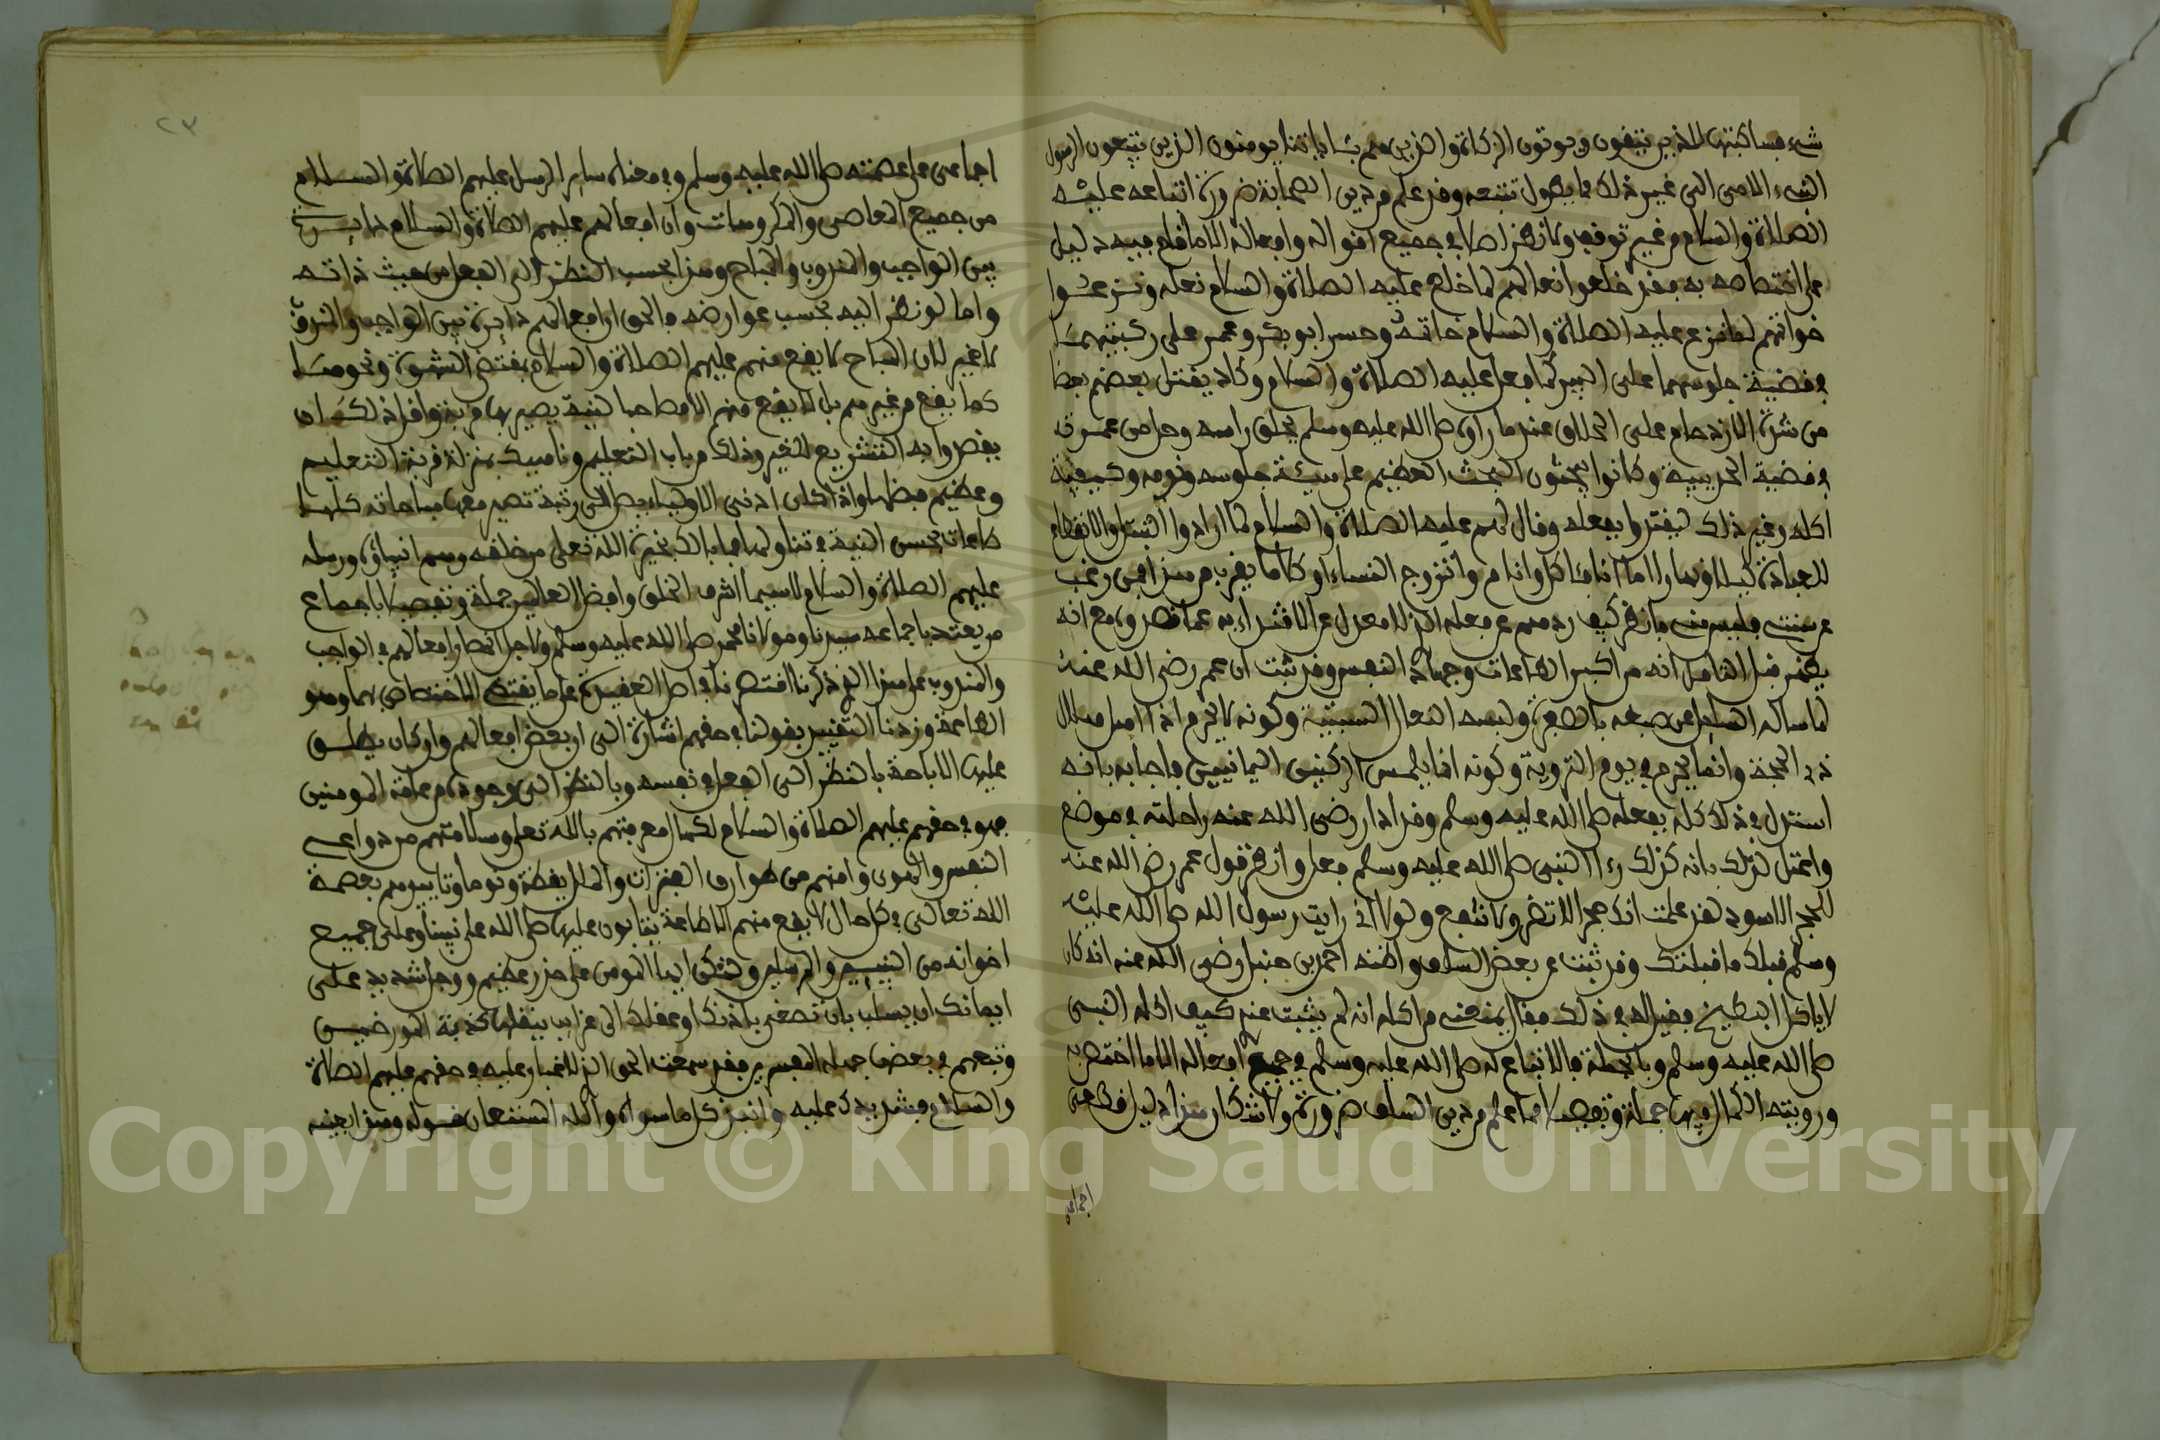 شيء فسأكتبها للذين يتقون ويوتون الزكاة والذين هم بئاياتنا يومنون الذين يتبعون الرسول
النبيء الامي الى غير ذلك مما يطول تتبعه وقد علم من دين الصحابة ضرورة اتباعه عليه
الصلاة والسلام من غير توقف ولا نظر اصلا في جميع اقواله وافعاله الا ما قام فيه دليل
على اختصاصه به فقد خلعوا نعالهم لما خلع عليه الصلاة والسلام نعله ونزعوا
خواتهم لما نزع عليه الصلاة والسلام خاتمه وحسر ابو بكر وعمر على ركبتيهما
في قضية جلوسهما على البير كما فعل عليه الصلاة والسلام وكاد يقتل بعضهم بعضا
من شدة الازدحام على الحلاق عندما راوه صلى الله عليه وسلم يحلق راسه وحل من عمرته
في قضية الحديبية وكانوا يبحثون البحث العظيم على هيئة جلوسه ونومه وكيفية
اكله وغير ذلك ليقتدوا بفعله وقال لهم عليه الصلاة والسلام لما ارادوا التبتل والانقطاع
للعبادة ليلا ونهارا اما انا فئاكل وانام واتزوج النساء او كلاما يقرب من هذا فمن رغب
عن سنتي فليس مني فانظر كيف ردهم عن فعله الذي لا معدل عن الاقتداء به عما قصدوه مع انه
يظهر قبل التامل انه من اكبر الطاعات وجهاد النفس وقد ثبت ان عمر رضي الله عنه
لما ساله السايل عن صبغه بالصفرة ولبسه النعال السبتية وكونه لا يحرم اذا اهل هلال
ذي الحجة وانما يحرم في يوم التروية وكونه انما يلمس الركنين اليمانيين فاجابه بانه
استدل في ذلك كله بفعله صلى الله عليه وسلم وقد ادار رضي الله عنه راحلته في موضع
واعتل لذلك بانه كذلك رءا النبي صلى الله عليه وسلم فعل وانظر قول عمر رضي الله عنه
للحجر الاسود لقد علمت انك حجر لا تضر ولا تنفع ولولا اني رايت رسول الله صلى الله عليه
وسلم قبلك ما قبلتك وقد ثبت عن بعض السلف واظنه احمد بن حنبل رضي الله عنه انه كان
لا ياكل البطيخ فقيل له في ذلك فقال يمنعني من اكله انه لم يثبت عندي كيف اكله النبي
صلى الله عليه وسلم وبالجملة فالاتباع له صلى الله عليه وسلم في جميع افعاله الا ما اختص به
ورويته الكمال فيها جملة وتفصيلا مما علم من دين السلف ضرورة ولا شك ان هذا دليل قطعي
اجماعي
٢٣
اجماعي على عصمته صلى الله عليه وسلم وفي معناه ساير الرسل عليهم الصلاة والسلام
من جميع المعاصي والمكروهات وان افعالهم عليهم الصلاة والسلام دايرة
بين الواجب والمندوب والمباح وهذا بحسب النظر الى الفعل من حيث ذاته
واما لو نظر اليه بحسب عوارضه فالحق ان افعالهم دايرة بين الواجب والمندوب
لا غير لان المباح لا يقع منهم عليهم الصلاة والسلام بمقتضى الشهوة ونحوها
كما يقع من غيرهم بل لا يقع منهم الا مصاحبا لنية يصير بها قربة واقل ذلك ان
يقصدوا به التشريع للغير وذلك من باب التعليم وناهيك بمنزلة قربة التعليم
وعظيم فضلها واذا كان ادنى الاولياء يصل الى رتبة تصير معها مباحاته كلها
طاعات بحسن النية في تناولها فما بالك بخيرة الله تعلى من خلقه وهم انبياؤه ورسله
عليهم الصلاة والسلام لا سيما اشرف الخلق وافضل العالمين جملة وتفصيلا باجماع
من يعتد باجماعه سيدنا ومولانا محمد صلى الله عليه وسلم ولاجل انحصار افعالهم في الواجب
والمندوب على هذا الذي ذكرناه اقتصرنا في اصل العقيدة على ما يقتضي الاختصاص بهما وهو
الطاعة وزدنا التقييد بقولنا في حقهم اشارة الى ان بعض افعالهم وان كان يطلق
عليها الاباحة بالنظر الى الفعل في نفسه وبالنظر الى وجوده من عامة المومنين
فهو في حقهم عليهم الصلاة والسلام لكمال معرفتهم بالله تعلى وسلامتهم من دواعي
النفس والهوى وامنهم من طوارق الفترات والملل يقظة ونوما وتاييدهم بعصمة
الله تعالى في كل حال لا يقع منهم الا طاعة يثابون عليها صلى الله على نبينا وعلى جميع
اخوانه من النبيين والمرسلين ولتكن ايها المومن على حذر عظيم ووجل شديد على
ايمانك ان يسلب بان تصغي باذنك او عقلك الى خرايف ينقلها كذبة المورخين
وتبعهم في بعضها جهلة المفسرين فقد سمعت الحق الذي لا غبار عليه في حقهم عليهم الصلاة
والسلام فشد يدك عليه وانبذ كل ما سواه والله المستعان قوله وهذا بعينه
Copyright © King Saud University